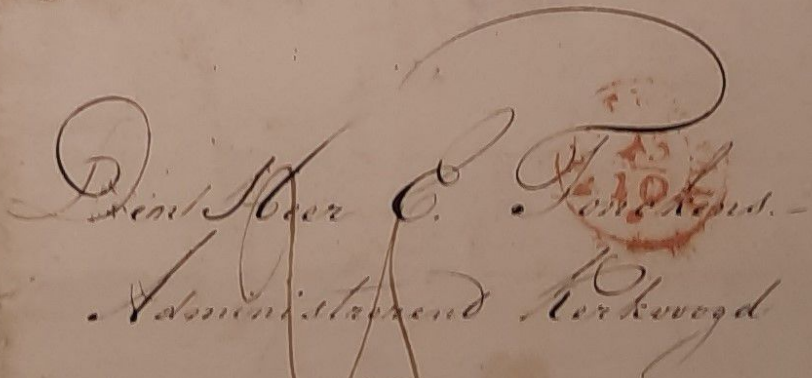 Den Heer E. Tonckens.
Administreerend Kerkvoogd